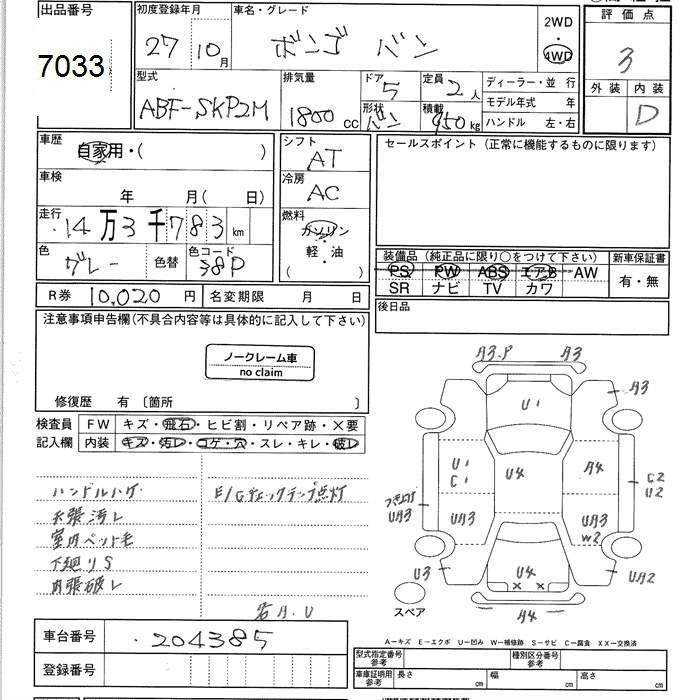 出品番号 初度登録年月 車名・グレード 2WD 評価点
7033 27 10月 ボンゴ バン 4WD 3
型式 排気量 ドア 定員 ディーラー・並行 外装 内装
ABF-SKP2M 1800cc 5 2人 モデル年式 年 D
形状 バン 積載 950kg ハンドル 左・右
車歴 自家用・( ) シフト AT セールスポイント（正常に機能するものに限ります）
車検 年 月( 日) 冷房 AC
走行 14万3千783km 燃料 ガソリン・軽・油 ( )
色 グレー 色替 色コード 38P 装備品（純正品に限り○をつけて下さい） 新車保証書
PS PW ABS エアB AW 有・無
SR ナビ TV カワ
R券 10,020円 名変期限 月 日 後日品
注意事項申告欄（不具合内容等は具体的に記入して下さい）
ノークレーム車
no claim
修復歴 有 〔箇所 〕
検査員 FW キズ・飛石・ヒビ割・リペア跡・×要
記入欄 内装 キズ・汚レ・コゲ・穴・スレ・キレ・破レ
ハンドルハゲ E/Gチェックランプ点灯
天張汚レ
室内ペット毛
下廻りS
内張破レ
A3.P A3
A3
U1
U1 C1 U4 A4 C2 U2
つき上げ UA3 UA3 UA3 W2
U3 U4 UA2
× ×
スペア A4
車台番号 204385
登録番号
A－キズ E－エクボ U－凹み W－補修跡 S－サビ C－腐食 XX－交換済
型式指定番号 参考 種別区分番号 参考
車庫証明用 参考 長さ cm 幅 cm 高さ cm